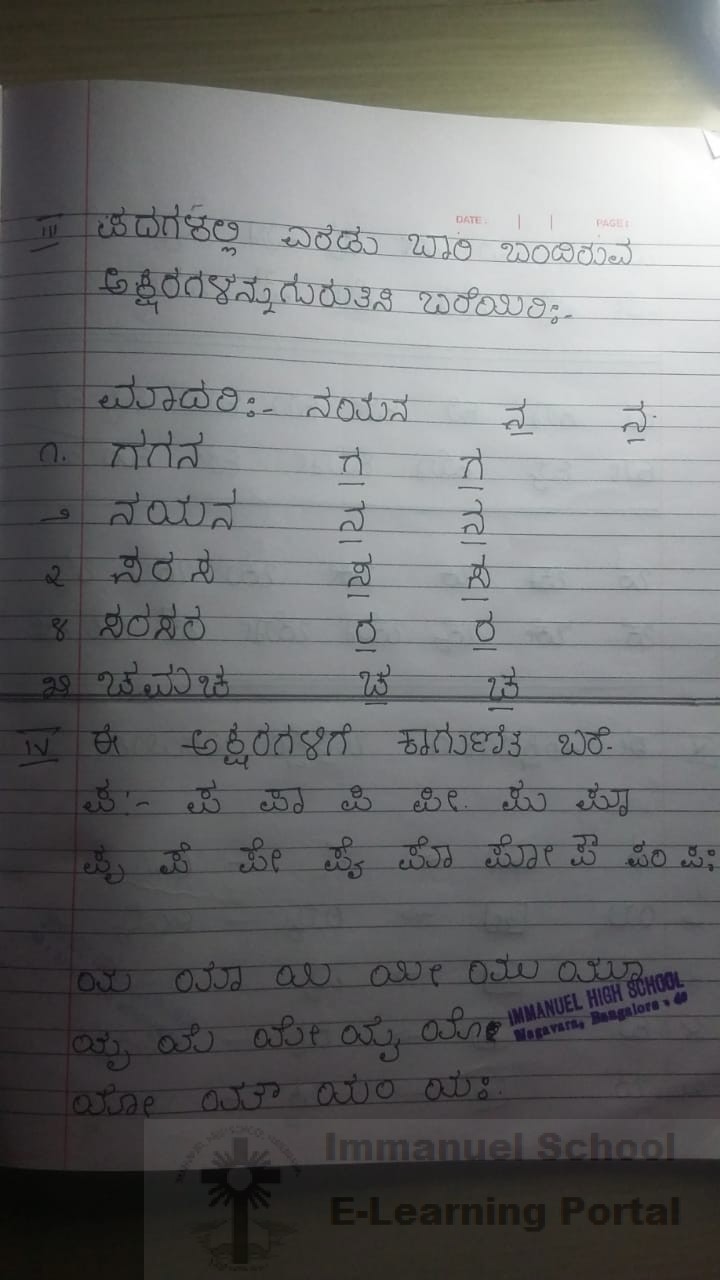 DATE: PAGE:
III ಪದಗಳಲ್ಲಿ ಎರಡು ಬಾರಿ ಬಂದಿರುವ
ಅಕ್ಷರಗಳನ್ನು ಗುರುತಿಸಿ ಬರೆಯಿರಿ:-
ಮಾದರಿ:- ನಯನ ನ ನ.
೧. ಗಗನ ಗ ಗ
೨ ನಯನ ನ ನ
೩ ಸರಸ ಸ ಸ
೪ ಸರಸರ ರ ರ
೫ ಚಮಚ ಚ ಚ
IV ಈ ಅಕ್ಷರಗಳಿಗೆ ಕಾಗುಣಿತ ಬರೆ.
ಪ:- ಪ ಪಾ ಪಿ ಪೀ. ಪು ಪೂ
ಪೃ ಪೆ ಪೇ ಪೈ ಪೊ ಪೋ ಪೌ ಪಂ ಪಃ
ಯ ಯಾ ಯಿ ಯೀ ಯು ಯೂ
ಯೃ ಯೆ ಯೇ ಯೈ ಯೊ
IMMANUEL HIGH SCHOOL
Nagavara, Bangalore - 45
ಯೋ ಯೌ ಯಂ ಯಃ.
Immanuel School
E-Learning Portal